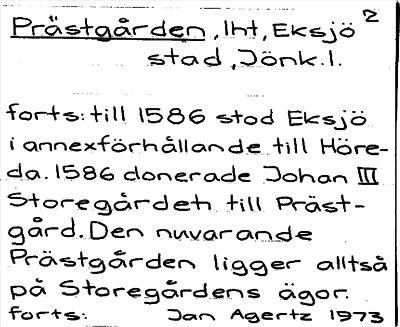 Prästgården, lht, Eksjö 2
stad, Jönk.l.
forts: till 1586 stod Eksjö
i annexförhållande till Höre-
da. 1586 donerade Johan III
Storegårdeh till Präst-
gård. Den nuvarande
Prästgården ligger alltså
på Storegårdens ägor.
forts: Jan Agertz 1973